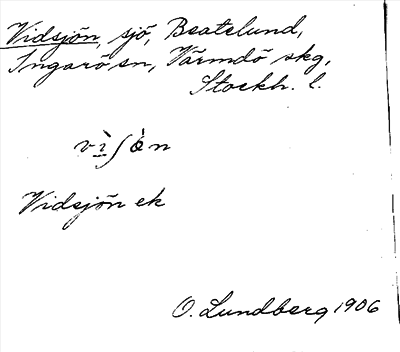 Vidsjön, sjö, Beatelund,
Ingarö sn, Värmdö skg,
Stockh. l.
Vidsjön ek
O. Lundberg 1906